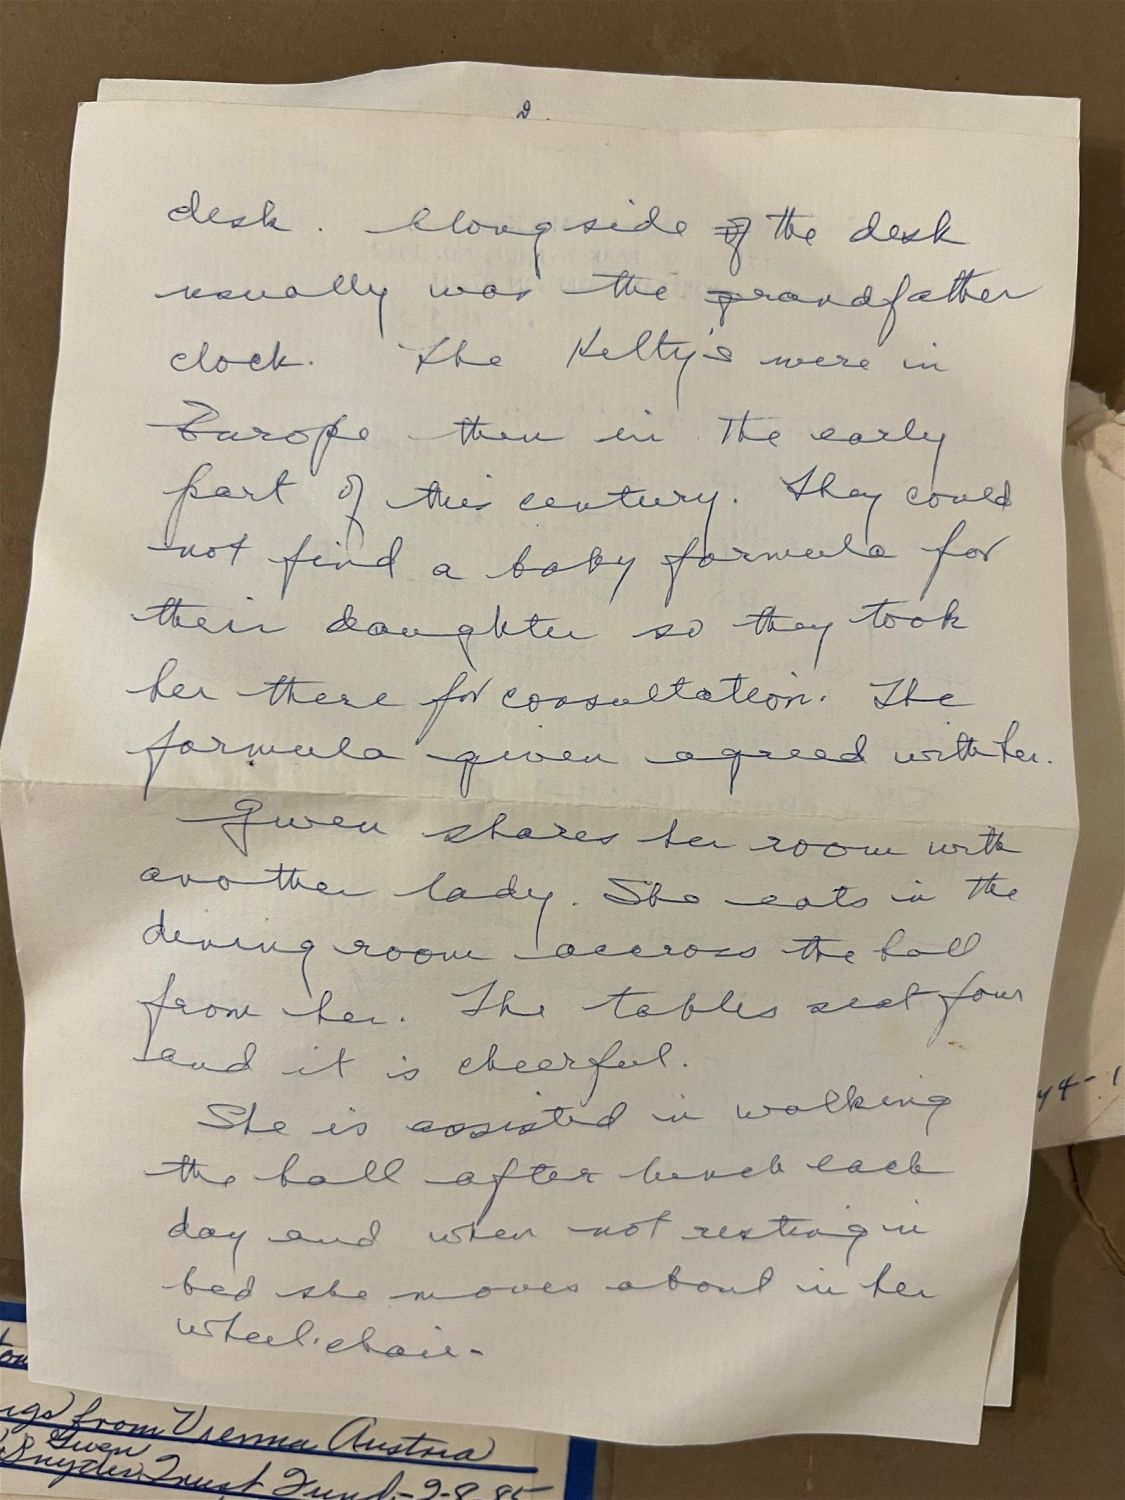 2.
desk. Alongside of the desk
usually was the grandfather
clock. The Kelty's were in
Europe then in the early
part of this century. They could
not find a baby formula for
their daughter so they took
her there for consultation. The
formula given agreed with her.
Gwen shares her room with
another lady. She eats in the
dining room accross the hall
from her. The tables seat four
and it is cheerful.
She is assisted in walking
the hall after lunch each
day and when not resting in
bed she moves about in her
wheel-chair-
y 4-1
from Vienna Austria
Gwen
Snyder Trust Fund-2-8-85